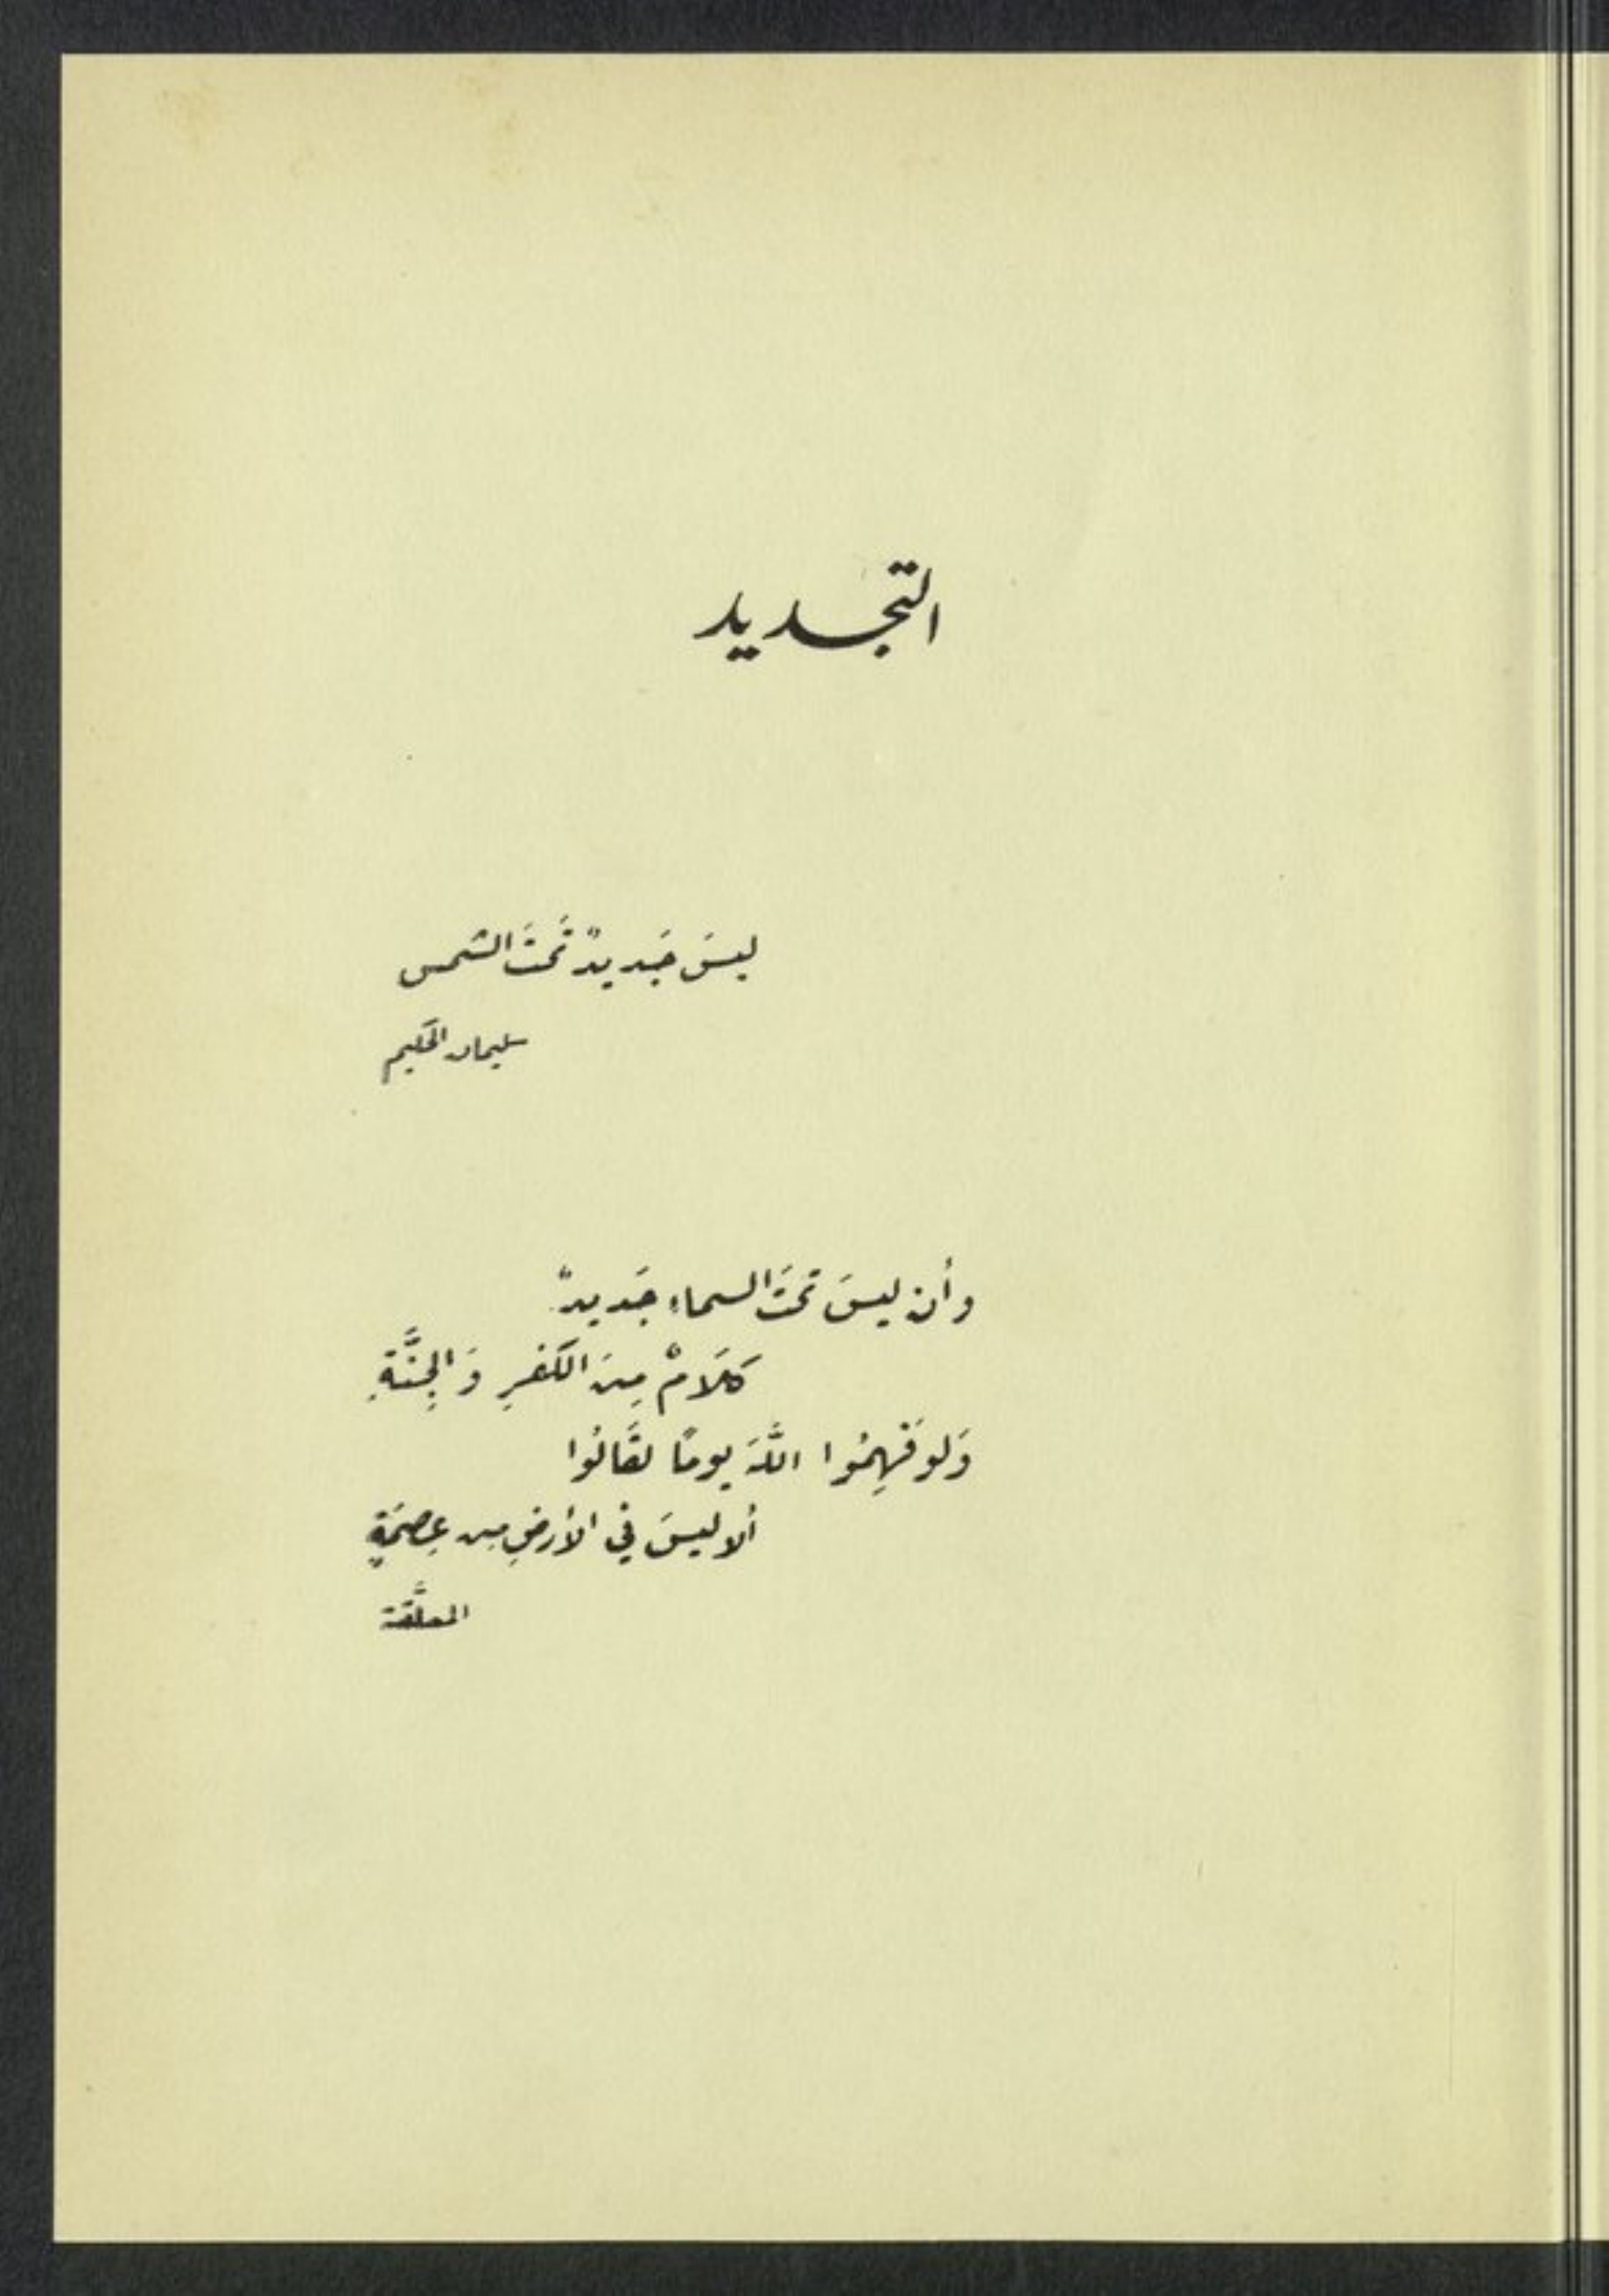 التجديد
ليسَ جَديدٌ تَحتَ الشمس
سليمان الحكيم
وأن ليسَ تحتَ السماءِ جَديدٌ
كَلَامٌ مِنَ الكفرِ وَالجِنَّةِ
وَلو فَهِمُوا اللَّهَ يومًا لقَالُوا
ألا ليسَ في الأرضِ مِن عِصمَةٍ
المعلَّقة